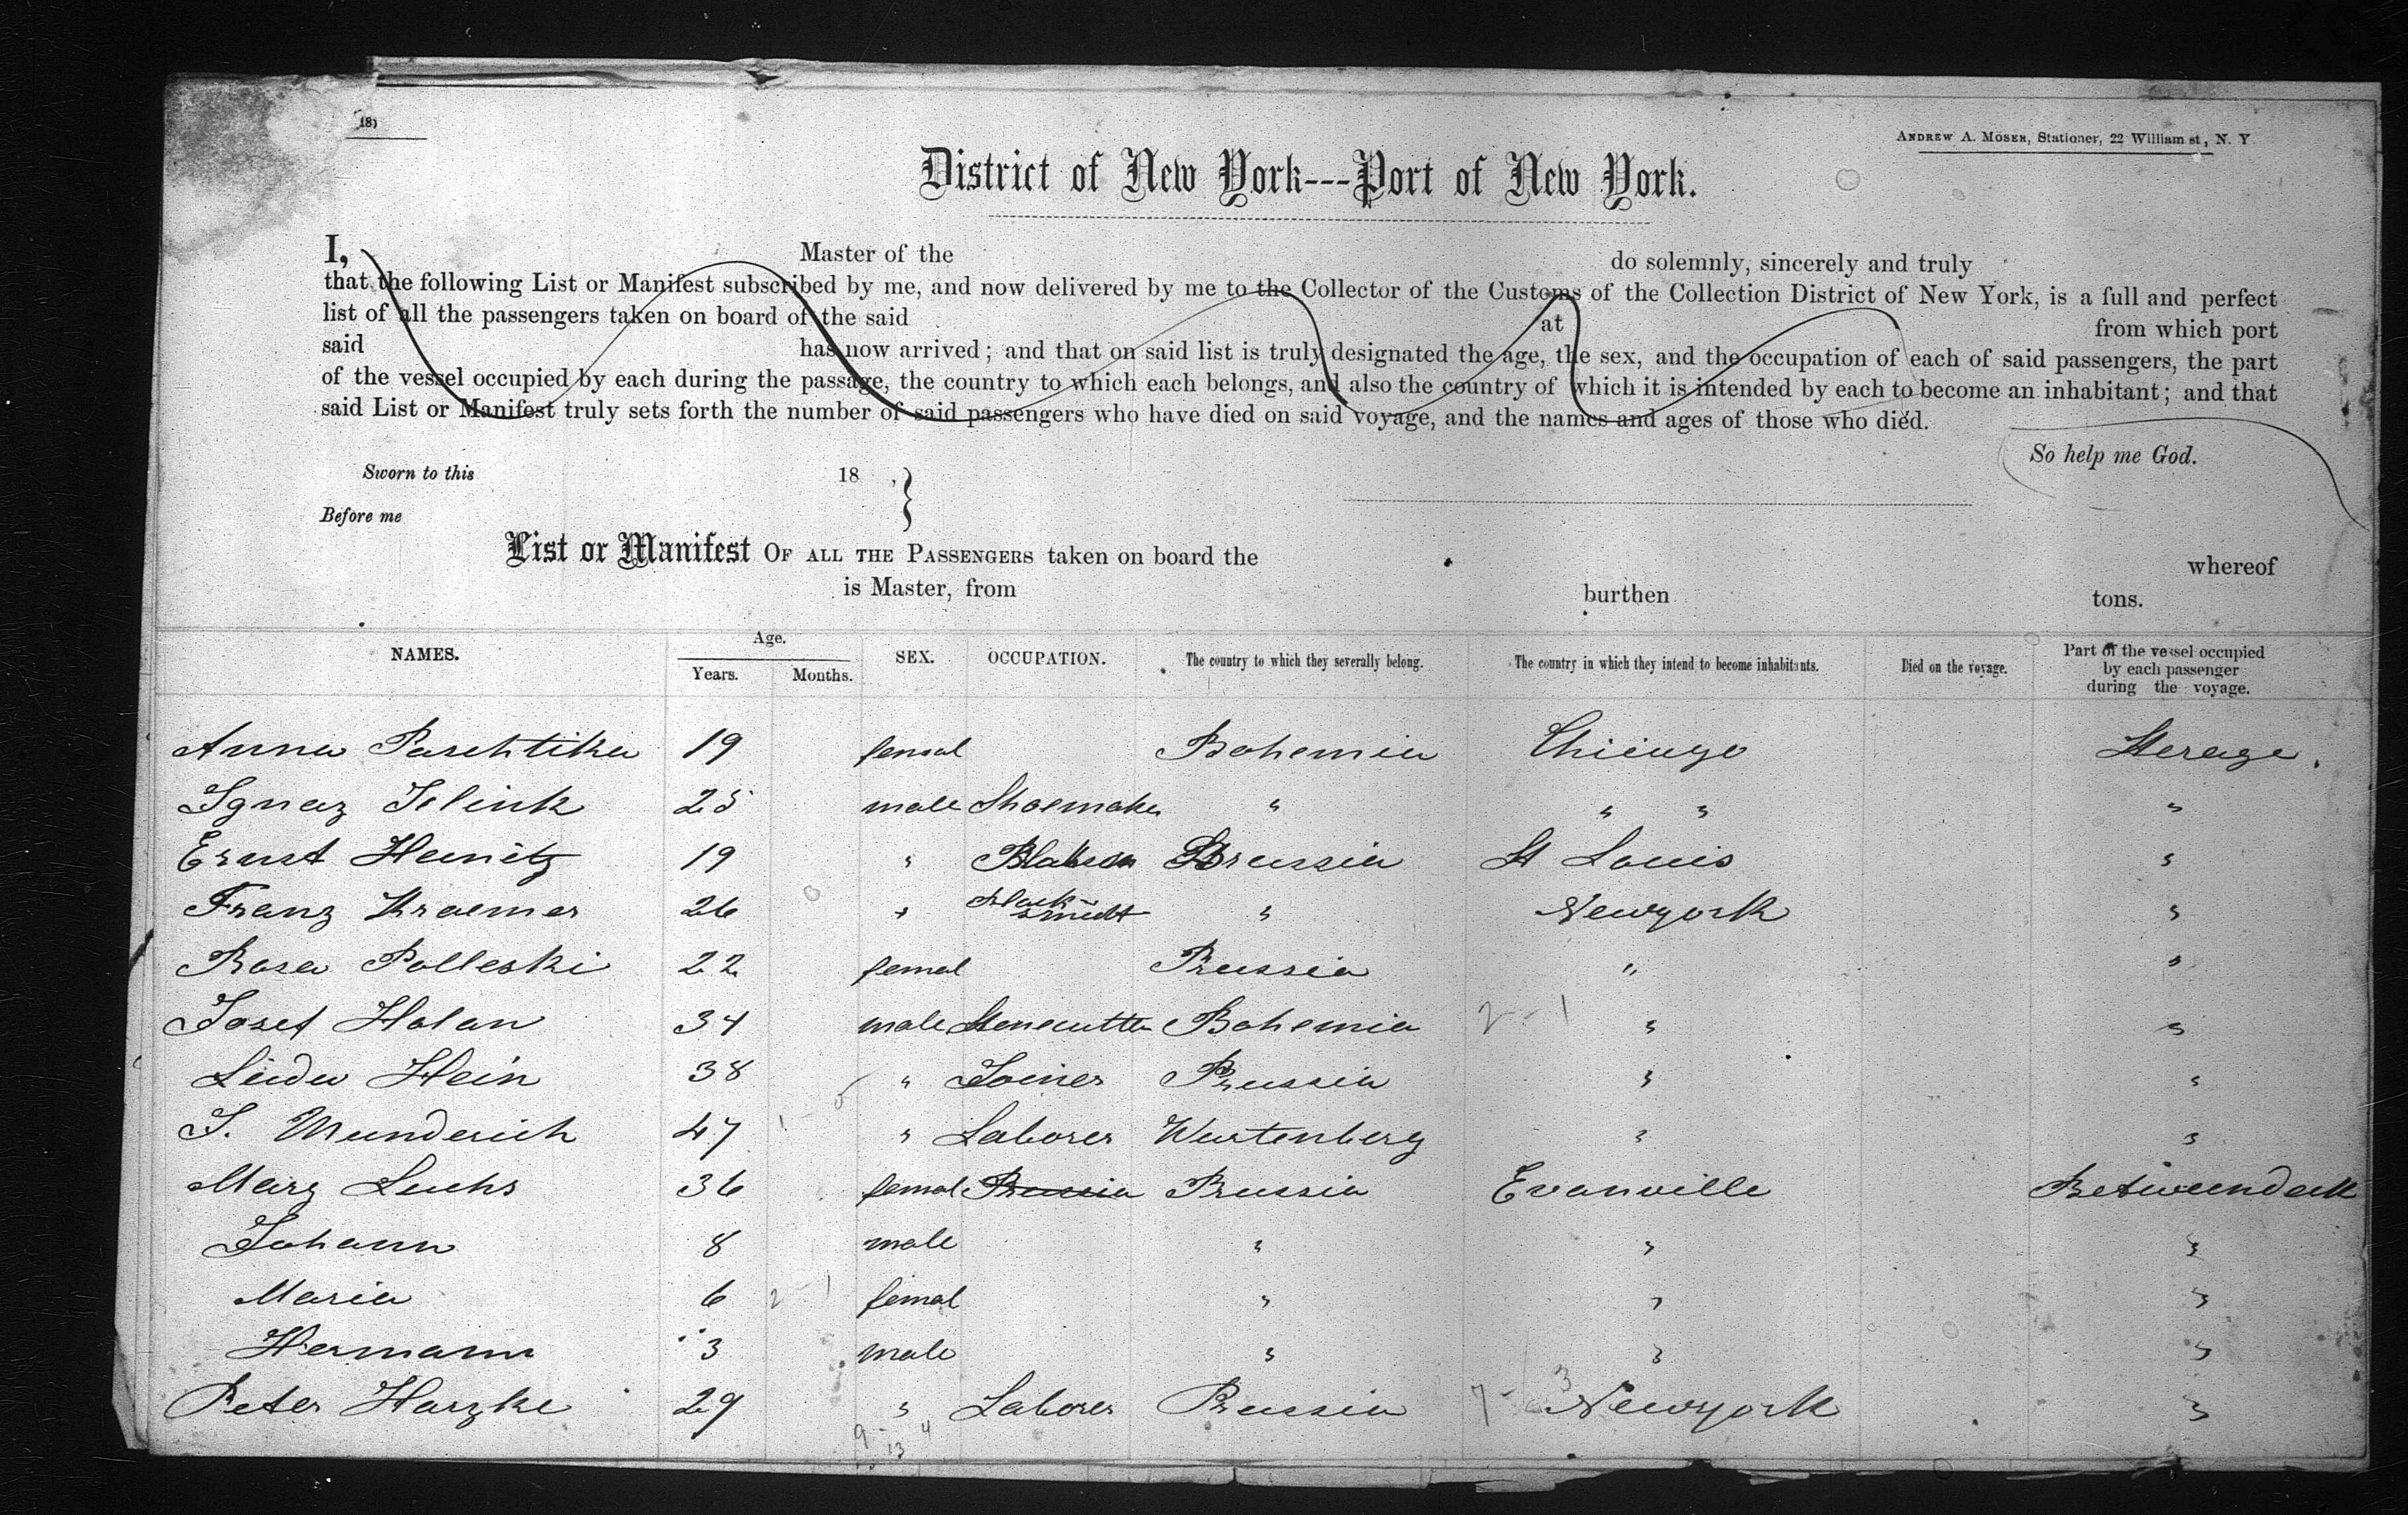 18)
ANDREW A. MOSER, Stationer, 22 William st, N. Y
District of New York---Port of New York.
I, Master of the do solemnly, sincerely and truly
that the following List or Manifest subscribed by me, and now delivered by me to the Collector of the Customs of the Collection District of New York, is a full and perfect
list of all the passengers taken on board of the said at from which port
said has now arrived; and that on said list is truly designated the age, the sex, and the occupation of each of said passengers, the part
of the vessel occupied by each during the passage, the country to which each belongs, and also the country of which it is intended by each to become an inhabitant; and that
said List or Manifest truly sets forth the number of said passengers who have died on said voyage, and the names and ages of those who died.
So help me God.
Sworn to this 18 ,
Before me
List or Manifest OF ALL THE PASSENGERS taken on board the whereof
is Master, from burthen tons.
NAMES. Age. Years. Months. SEX. OCCUPATION. The country to which they severally belong. The country in which they intend to become inhabitants. Died on the voyage. Part of the vessel occupied by each passenger during the voyage.
Anna Paschtika 19 femal Bohemia Chicago Sterage.
Ignaz Jelink 25 male Shoemaker " " " "
Ernst Heinitz 19 " Prussia St Louis "
Franz Kraemer 26 " Blacksmidt " Newyork "
Rosa Polleski 22 femal Prussia " "
Josef Holan 34 male Stonecutter Bohemia 2 - 1 " "
Hein 38 " Joiner Prussia " "
J. Wunderich 47 " Laborer Wurtenberg " "
Mary Luchs 36 femal Prussia Prussia Evanville Betweendeck
Johann 8 male " " "
Maria 6 2 - 1 femal " " "
Hermann 3 male " " "
Peter Harzke 29 " Laborer Prussia 7 - 3 Newyork "
9 - 4
13